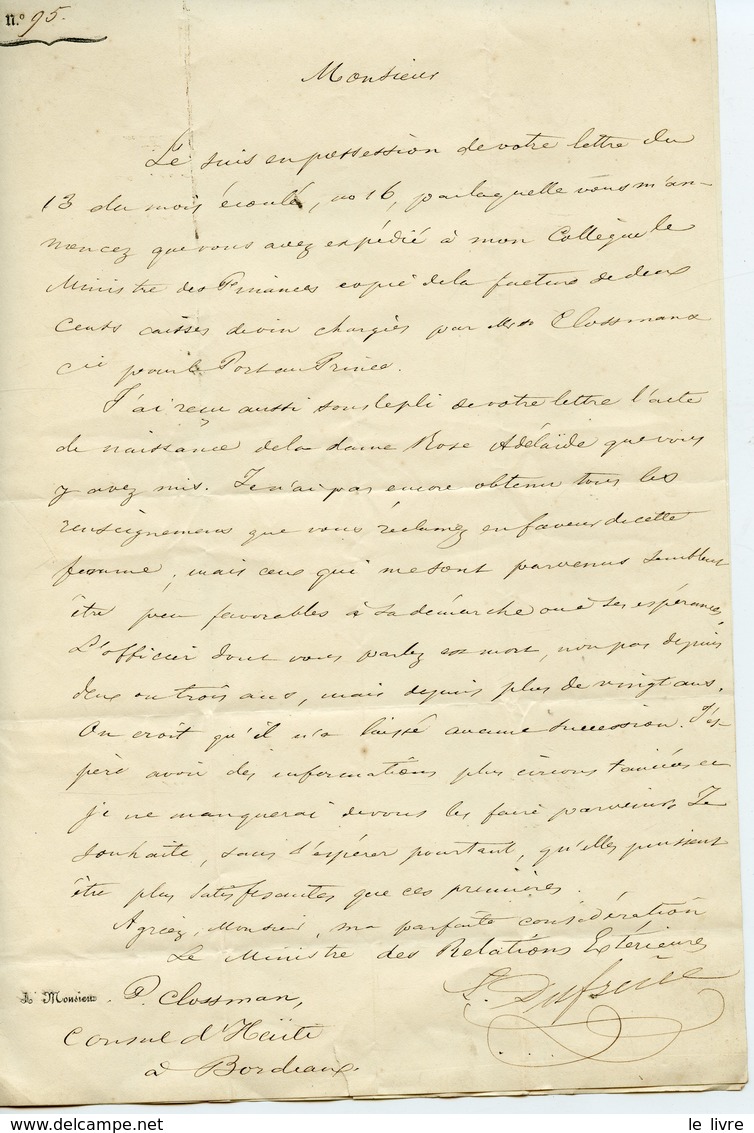 N.o 95.
Monsieur
Je suis en possession de votre lettre du
13 du mois écoulé, no 16, par laquelle vous m'an-
noncez que vous avez expédié à mon Collègue le
Ministre des Finances copie de la facture de deux
cents caisses de vin chargées par Mrs Clossmann
Cie pour le Port au Prince.
J'ai reçu aussi sous le pli de votre lettre l'acte
de naissance de la dame Rose Adélaïde que vous
y avez mis. Je n'ai pas encore obtenu tous les
renseignemens que vous réclamez en faveur de cette
femme, mais ceux qui me sont parvenus semblent
être peu favorables à sa démarche ou à ses espérances.
L'officier dont vous parlez est mort, non pas depuis
deux ou trois ans, mais depuis plus de vingt ans.
On croit qu'il n'a laissé aucune succession. J'es-
père avoir des informations plus circonstanciées et
je ne manquerai de vous les faire parvenir. Je
souhaite, sans l'espérer pourtant, qu'elles puissent
être plus satisfesantes que ces premières.
Agréez, Monsieur, ma parfaite considération
Le Ministre des Relations Extérieures
L. Dufrène
A Monsieur P. Clossman,
Consul d'Haïti
à Bordeaux.
le livre